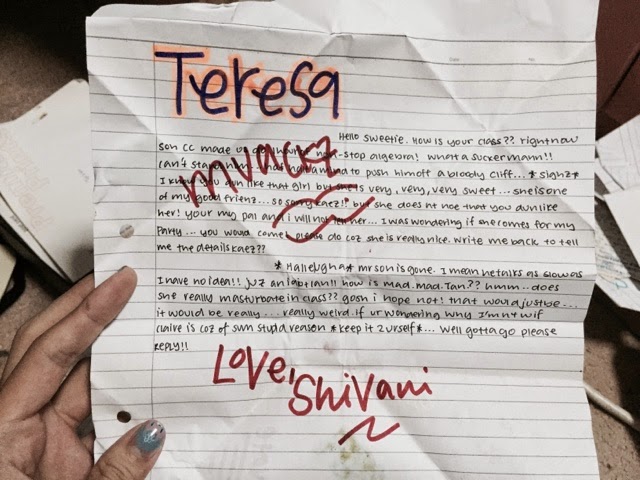 Teresa
Hello sweetie. How is your class?? right now
son CC made us do 1 hour non-stop algebra! what a suckermann!!
can't stand him. had to push him off a bloody cliff... *sighz*
muackz
I know you dun like that girl but she is very, very, very sweet... she is one
of my good frienz... so sorry kaez!! but she does nt noe that you dun like
her! your my pal and i will not her... I was wondering if she comes for my
Party... you would come! please do coz she is really nice. write me back to tell
me the details kaez??
*Hallelugha* mr son is gone. I mean he talks as slow as
I have no idea!! juz an how is mad. mad. Tan?? hmm... does
she really masturbate in class?? gosh i hope not! that would just be...
it would be really... really weird. if ur wondering why I'm nt wif
claire is coz of sum stupid reason *keep it 2 urself*... well gotta go please
reply!!
Love,
Shivani